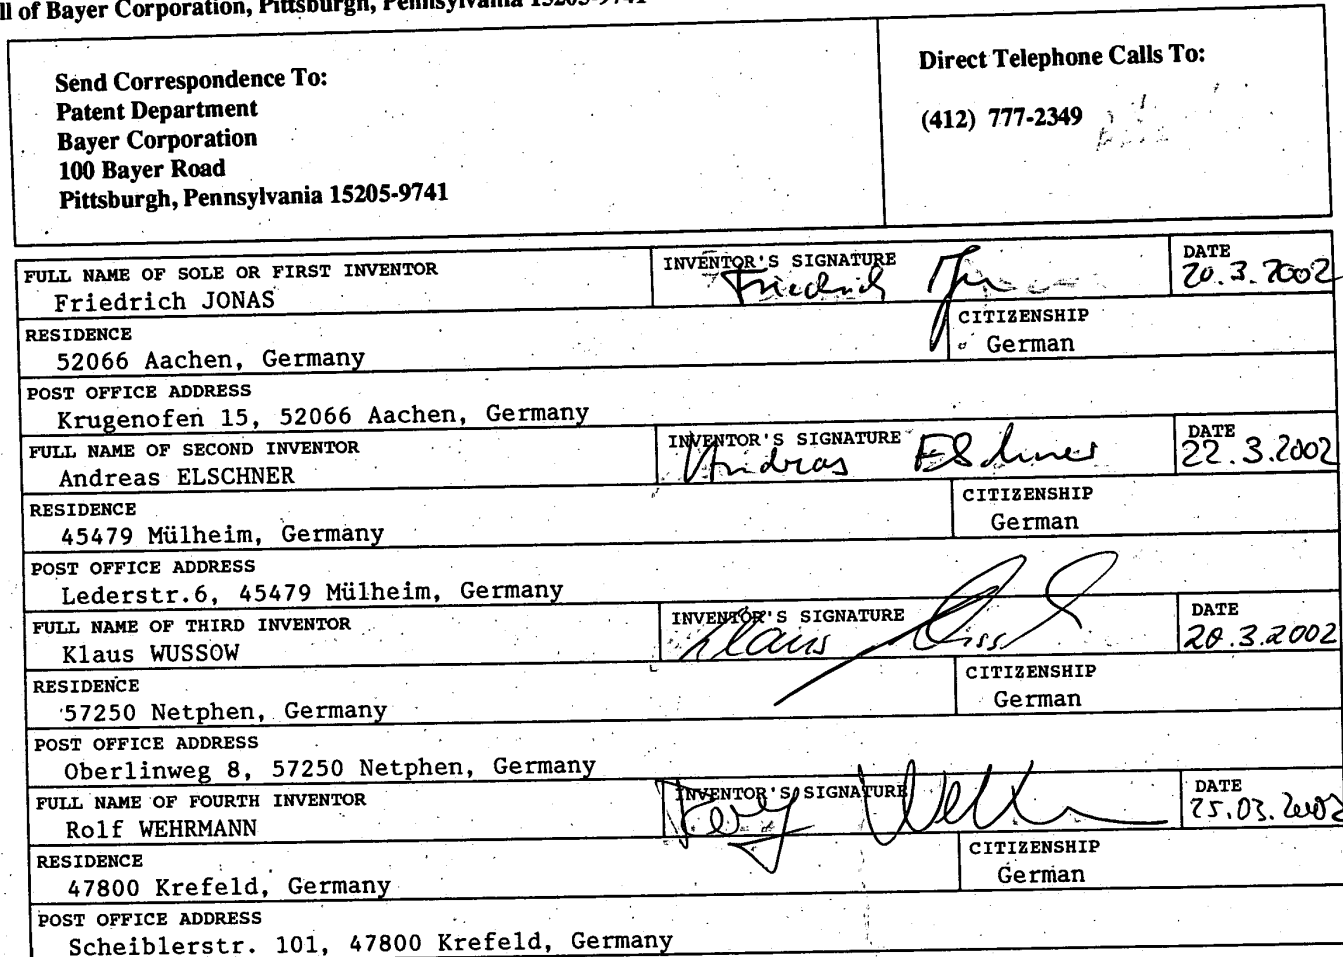 ll of Bayer Corporation, Pittsburgh, Pennsylvania 15205-9741
Send Correspondence To:
Patent Department
Bayer Corporation
100 Bayer Road
Pittsburgh, Pennsylvania 15205-9741
Direct Telephone Calls To:
(412) 777-2349
FULL NAME OF SOLE OR FIRST INVENTOR
Friedrich JONAS
INVENTOR'S SIGNATURE
Friedrich
DATE
20.3.2002
RESIDENCE
52066 Aachen, Germany
CITIZENSHIP
German
POST OFFICE ADDRESS
Krugenofen 15, 52066 Aachen, Germany
FULL NAME OF SECOND INVENTOR
Andreas ELSCHNER
INVENTOR'S SIGNATURE
Andreas Elschner
DATE
22.3.2002
RESIDENCE
45479 Mülheim, Germany
CITIZENSHIP
German
POST OFFICE ADDRESS
Lederstr.6, 45479 Mülheim, Germany
FULL NAME OF THIRD INVENTOR
Klaus WUSSOW
INVENTOR'S SIGNATURE
Klaus
DATE
20.3.2002
RESIDENCE
57250 Netphen, Germany
CITIZENSHIP
German
POST OFFICE ADDRESS
Oberlinweg 8, 57250 Netphen, Germany
FULL NAME OF FOURTH INVENTOR
Rolf WEHRMANN
INVENTOR'S SIGNATURE
DATE
25.03.2002
RESIDENCE
47800 Krefeld, Germany
CITIZENSHIP
German
POST OFFICE ADDRESS
Scheiblerstr. 101, 47800 Krefeld, Germany